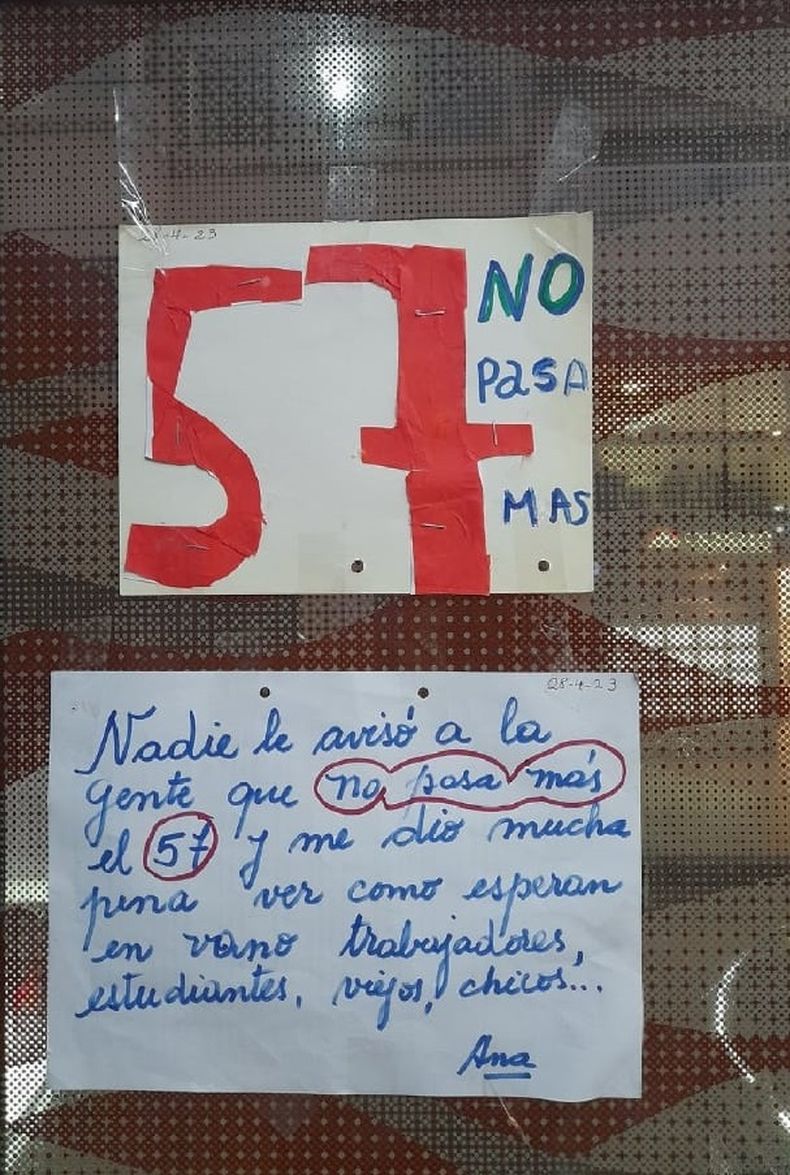 28-4-23
57
NO
PasA
MAS
28-4-23
Nadie le avisó a la
gente que no pasa más
el 57 y me dio mucha
pena ver como esperan
en vano trabajadores,
estudiantes, viejos, chicos...
Ana